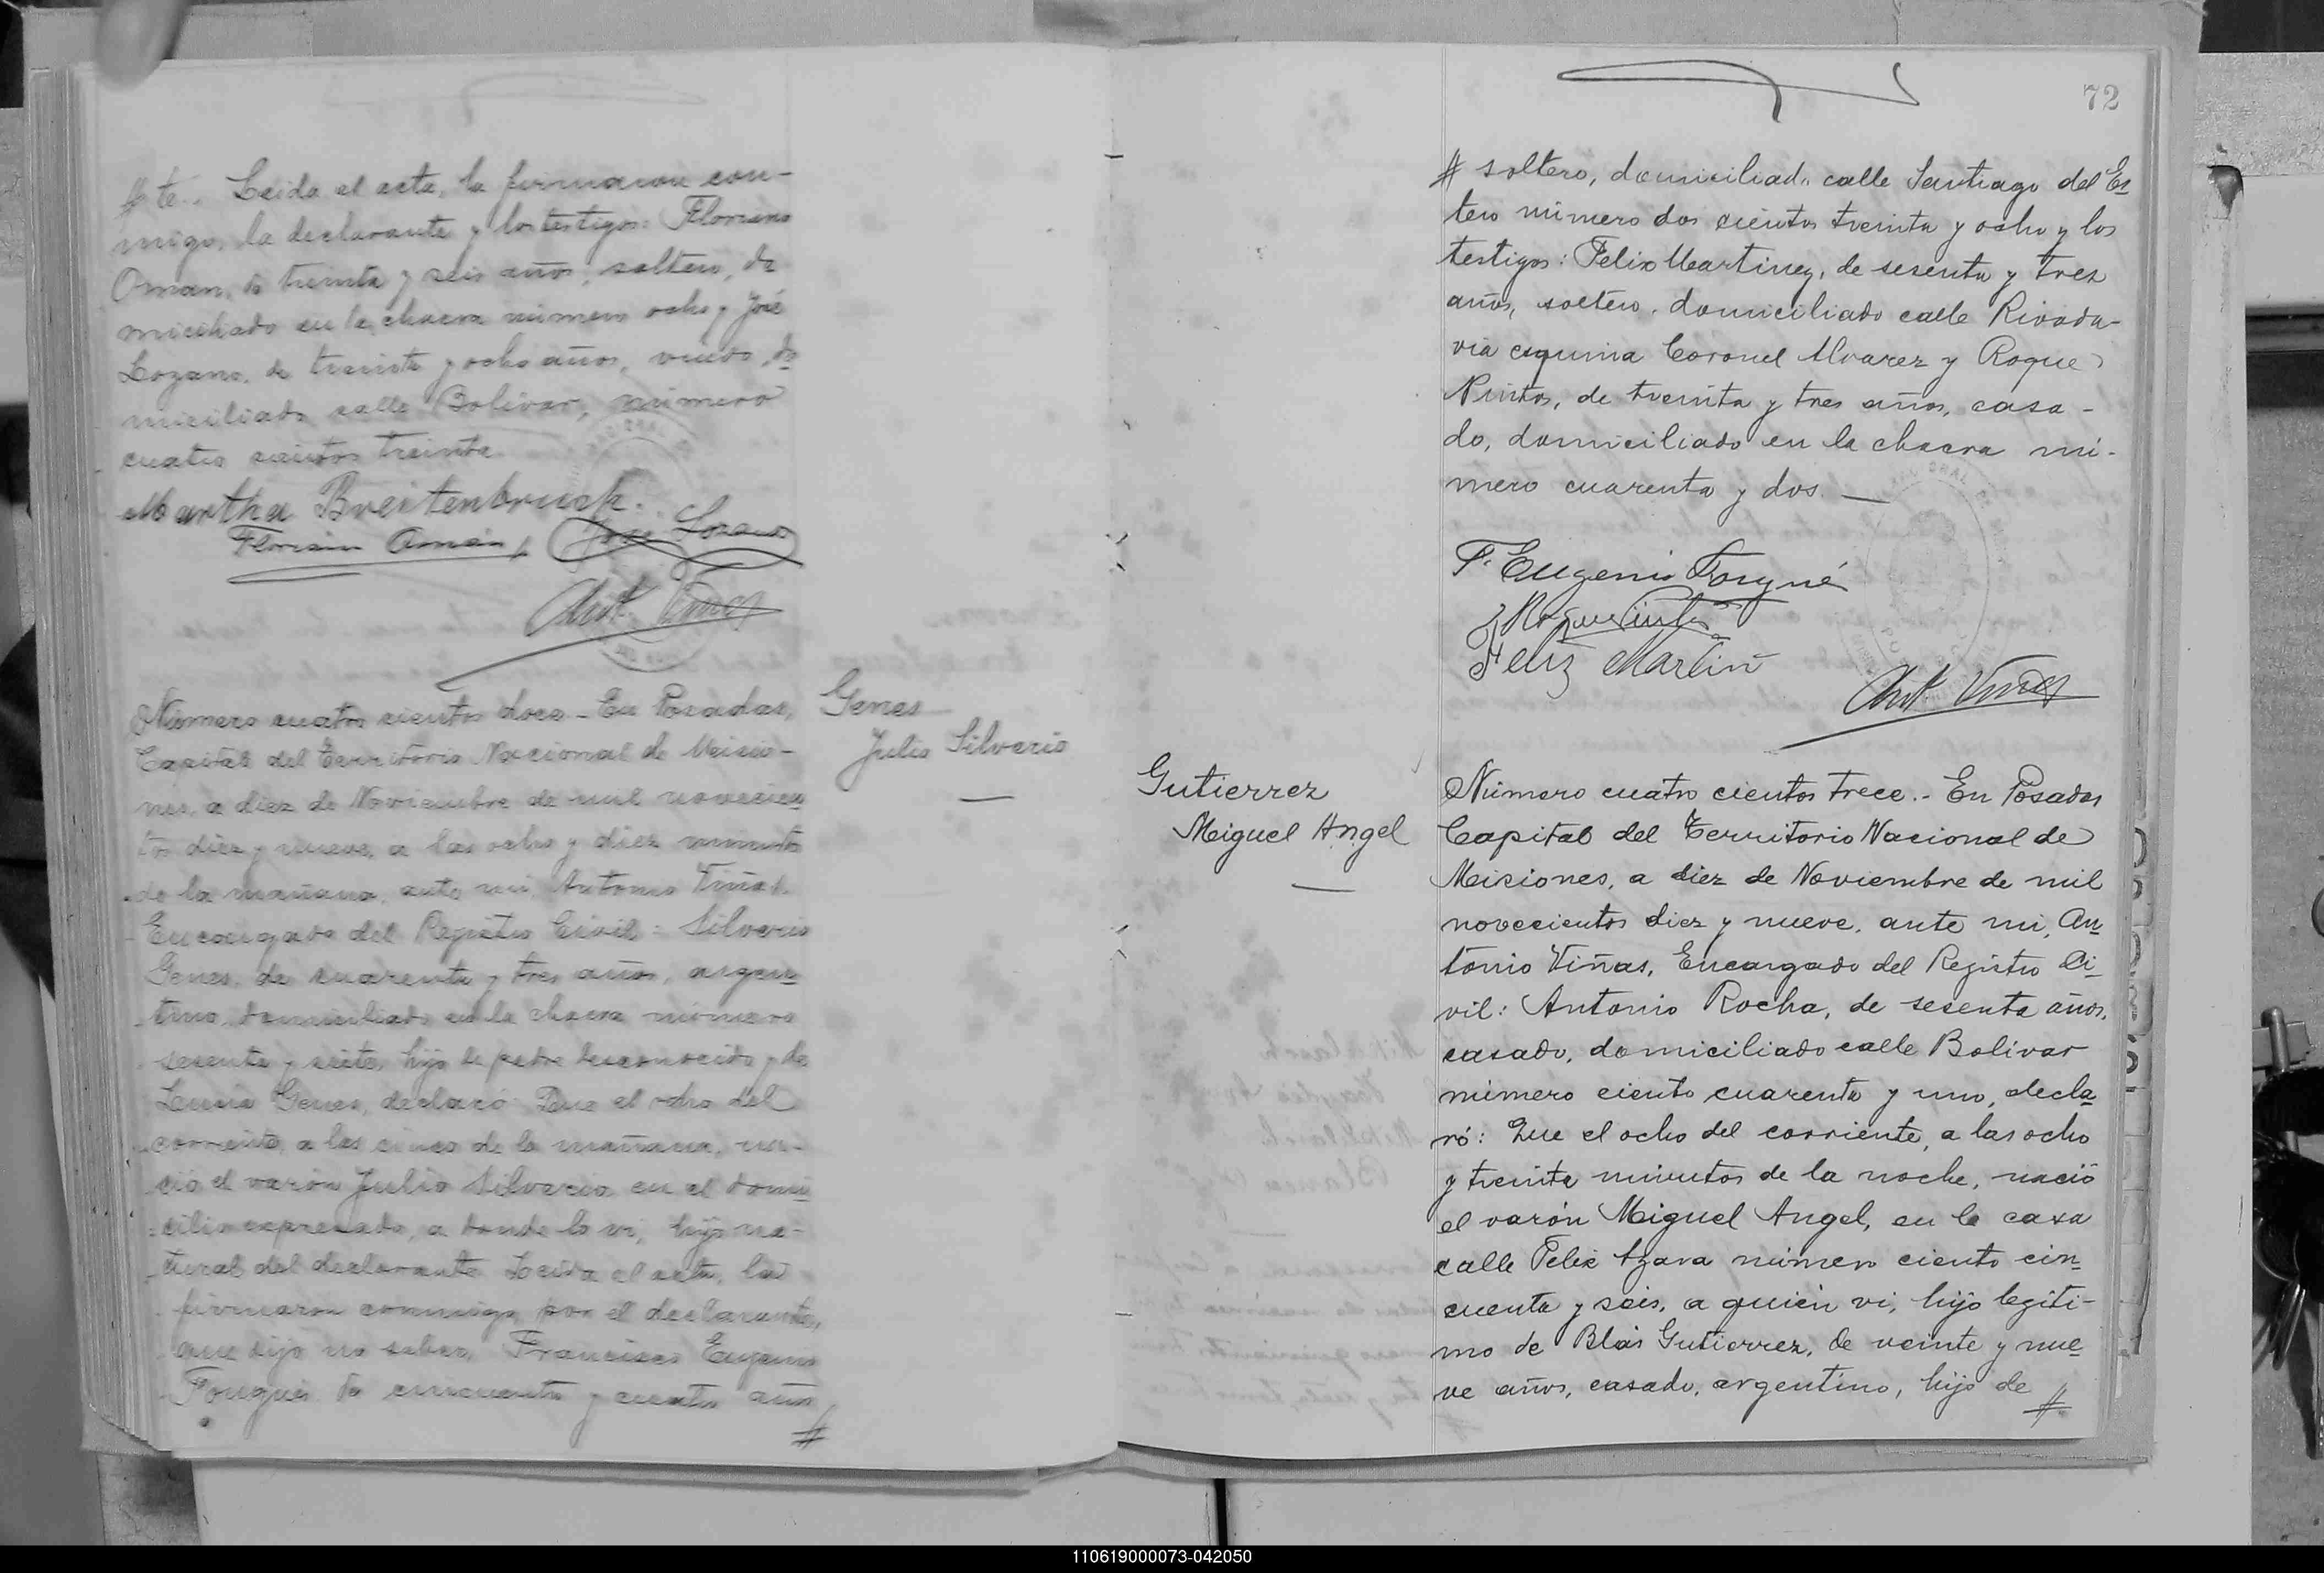 # te.. Leida el acta, la firmaron con-
migo, la declarante y los testigos: Floriano
Oman, de treinta y seis años, soltero, do
miciliado en la chacra número ocho y José
Lozano, de treinta y ocho años, viudo, do
miciliado calle Bolivar, número
cuatro cientos treinta.
Martha Breitenbruch.
Florian Oman, José Lozano
Ant. Viñas
Número cuatro cientos doce - En Posadas,
Capital del Territorio Nacional de Misio-
nes, a diez de Noviembre de mil novecien
tos diez y nueve, a las ocho y diez minutos
de la mañana, ante mi, Antonio Viñas,
Encargado del Registro Civil: Silverio
Genes, de cuarenta y tres años, argen
tino, domiciliado en la chacra número
sesenta y siete, hijo de padre desconocido y de
Lucia Genes, declaró: Que el ocho del
corriente, a las cinco de la mañana, na-
ció el varón Julio Silverio en el domi
cilio expresado, a donde lo vi, hijo na-
tural del declarante. Leida el acta, la
firmaron conmigo por el declarante,
que dijo no saber, Francisco Eugenio
Fouqué de cincuenta y cuatro años
#
Genes
Julio Silverio
72
# soltero, domiciliado calle Santiago del Es
tero número dos cientos treinta y ocho y los
testigos: Felix Martinez, de sesenta y tres
años, soltero, domiciliado calle Rivada-
via esquina Coronel Alvarez y Roque
Pintos, de treinta y tres años, casa-
do, domiciliado en la chacra nú-
mero cuarenta y dos. —
F. Eugenio Fouqué
Roque Pintos
Feliz Martin
Ant. Viñas
Gutierrez
Miguel Angel
Número cuatro cientos trece.- En Posadas
Capital del Territorio Nacional de
Misiones, a diez de Noviembre de mil
novecientos diez y nueve, ante mi, An
tonio Viñas, Encargado del Registro Ci
vil: Antonio Rocha, de sesenta años,
casado, domiciliado calle Bolivar
número ciento cuarenta y uno, decla
ró: Que el ocho del corriente, a las ocho
y treinta minutos de la noche, nació
el varón Miguel Angel, en la casa
calle Felix Azara número ciento cin
cuenta y seis, a quien vi, hijo legiti-
mo de Blás Gutierrez, de veinte y nue
ve años, casado, argentino, hijo de #
110619000073-042050